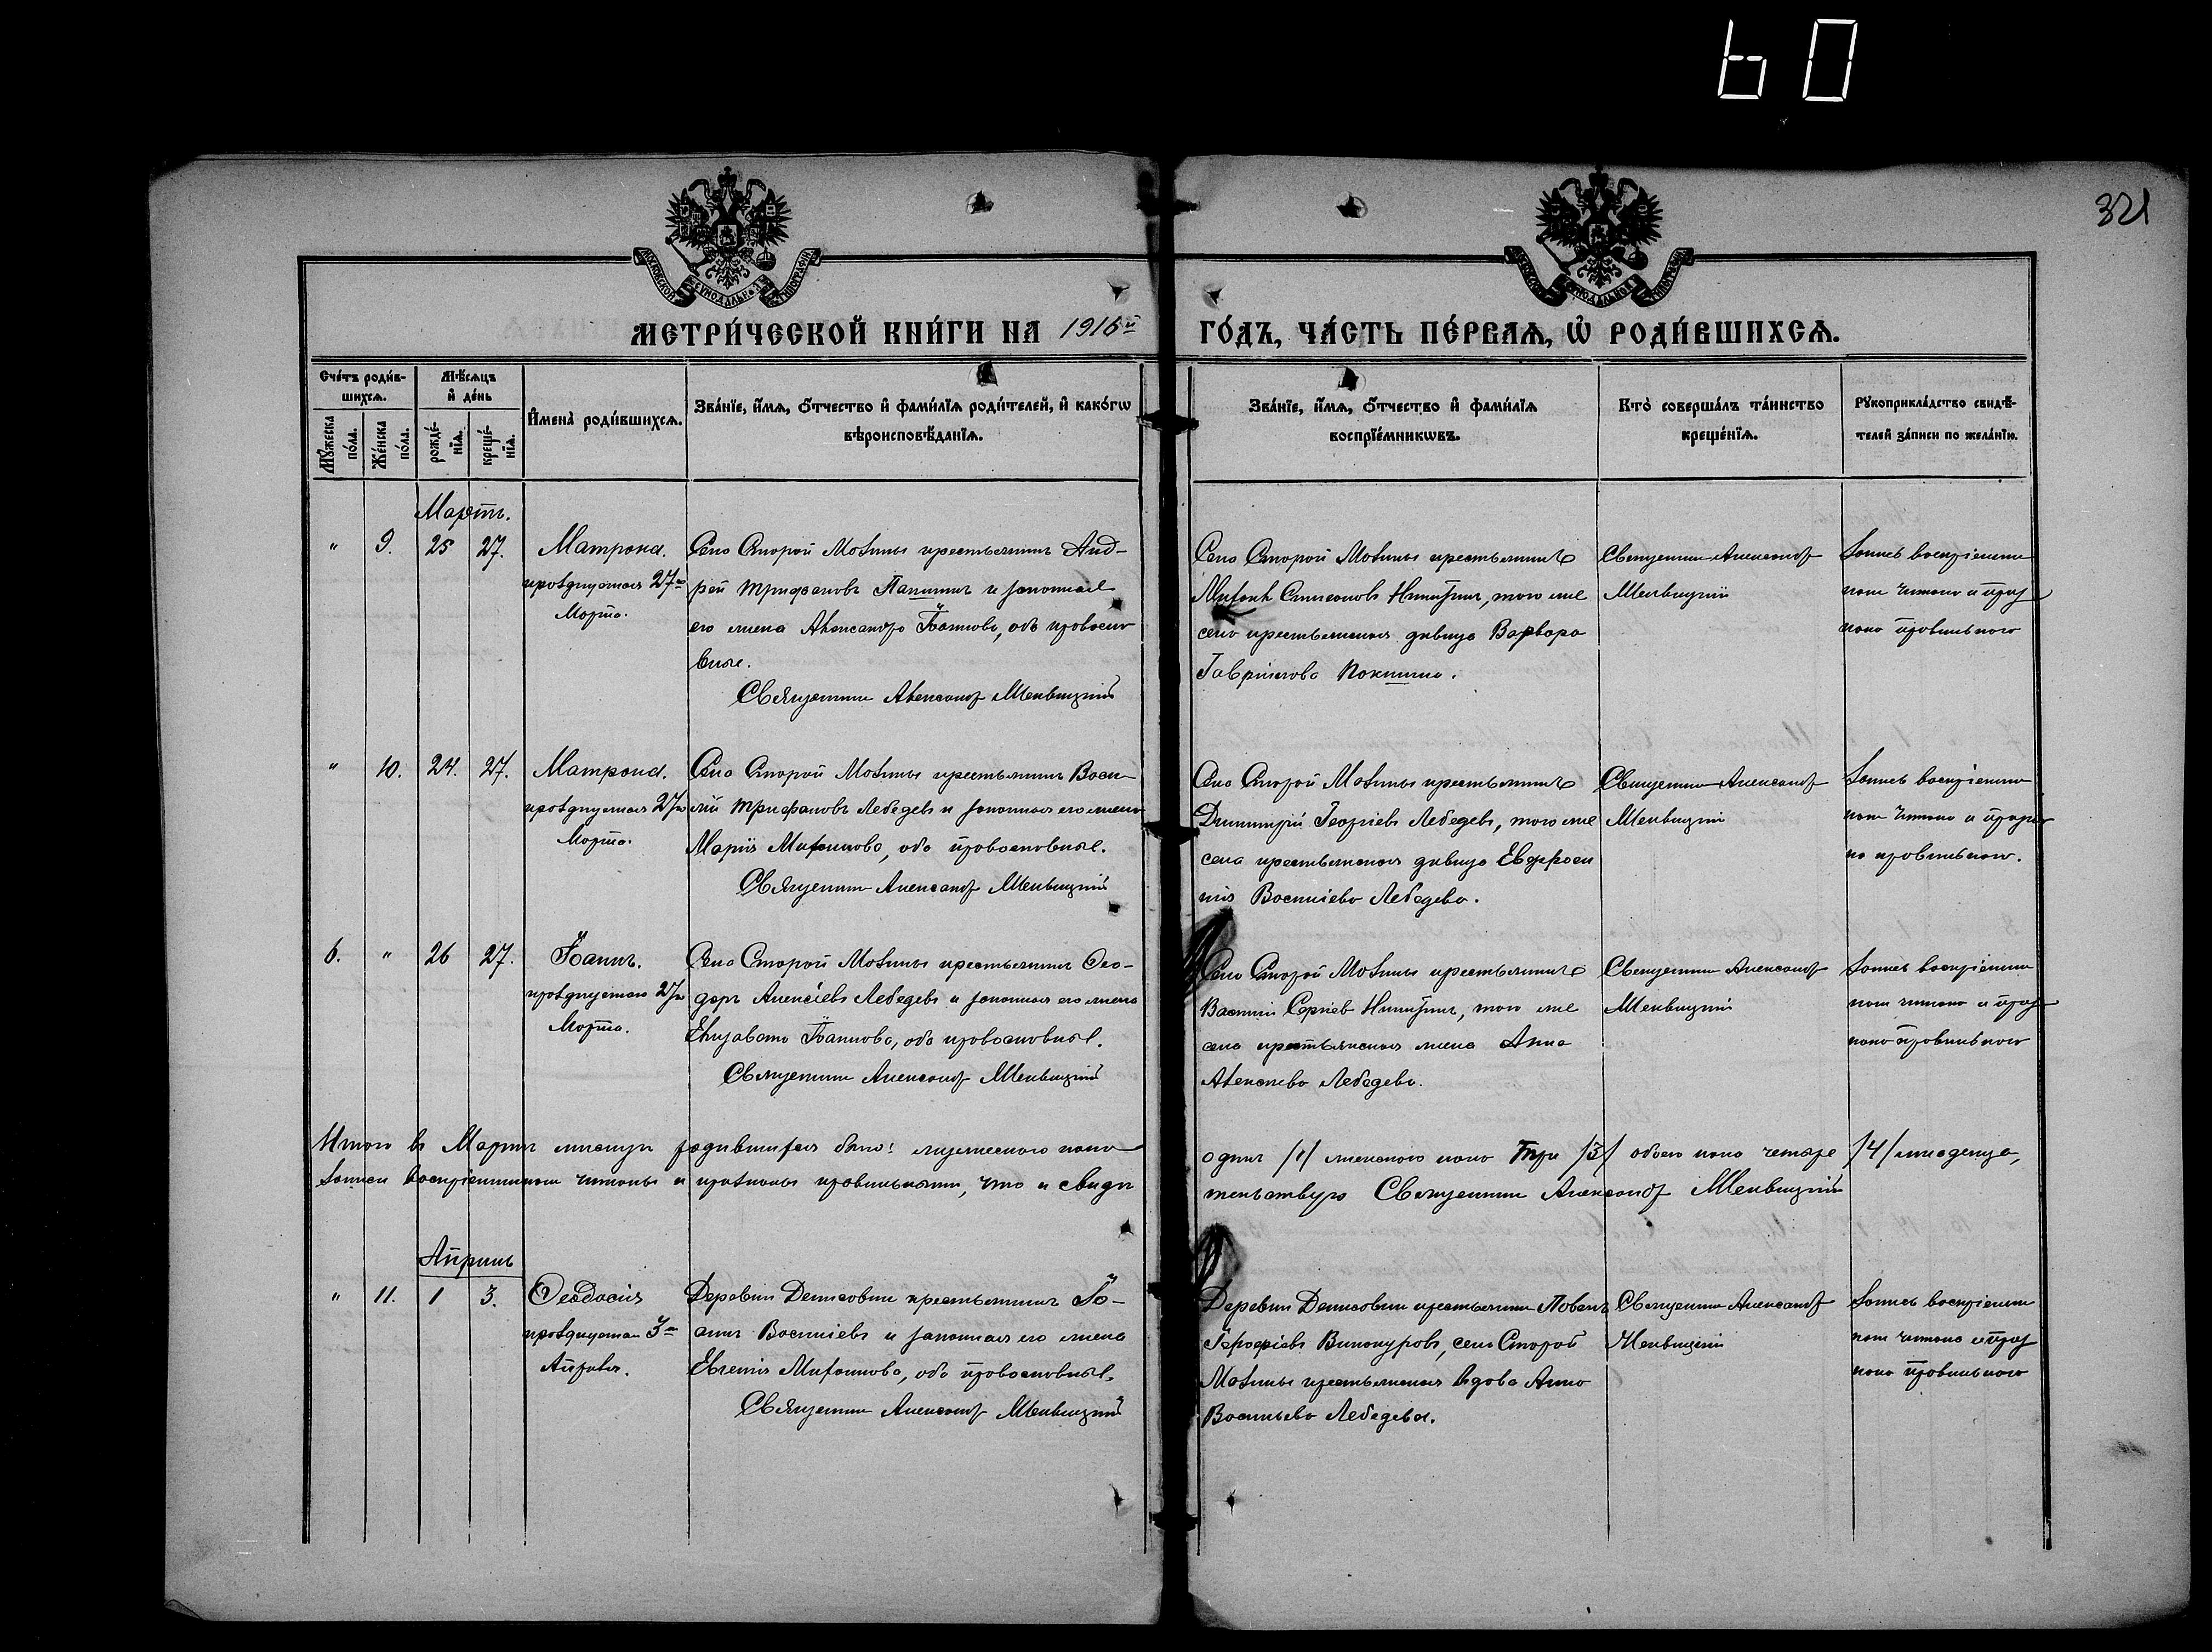 60
321
МЕТРИ́ЧЕСКОЙ КНИ́ГИ НА 1916й ГО́ДЪ, ЧА́СТЬ ПЕ́РВАѦ, Ѡ҆ РОДИ́ВШИХСѦ.
Сче́тъ роди́в-
шихсѧ.
Мꙋ́жеска по́ла.
Же́нска по́ла.
Мѣ́сѧцъ
и҆ де́нь
рожде́-
нїѧ.
креще́-
нїѧ.
И҆мена̀ роди́вшихсѧ.
Зва́нїе, и҆́мѧ, ѻ҆́тчество и҆ фами́лїѧ роди́телей, и҆ како́гѡ
вѣроисповѣ́данїѧ.
Зва́нїе, и҆́мѧ, ѻ҆́тчество и҆ фами́лїѧ
воспрїе́мникѡвъ.
Кто̀ соверша́лъ та́инство
креще́нїѧ.
Рꙋкоприкла́дство свидѣ́-
телей за́писи по жела́нїю.
Мартъ.
" 9. 25 27. Матрона.
празднуемая 27го
Марта.
Села Старой Мотины крестьянинъ Анд-
рей Трифановъ Папшинъ и законная
его жена Александра Іоаннова, оба православ
вные.
Священникъ Александр
Села Старой Мотины крестьянинъ
того же
села крестьянская дѣвица Варвара
Гавриилова
Священникъ Александръ
Запись воспріемни
камъ читана и приз
нана правильною
" 10. 24. 27. Матрона.
празднуемая 27го
Марта.
Села Старой Мотины крестьянинъ Васи-
лій Трифановъ Лебедевъ и законная его жена
Марія оба православные.
Священникъ Александр
Села Старой Мотины крестьянинъ
Димитрій Георгіевъ Лебедевъ, того же
села крестьянская дѣвица Евфроси
нія Василіева Лебедева.
Священникъ Александръ
Запись воспріемни
камъ читана и призна
на правильною.
6. " 26 27. Іоаннъ.
празднуемаго 27го
Марта.
Села Старой Мотины крестьянинъ Ѳео-
доръ Алексіевъ Лебедевъ и законная его жена
Елизавета Іоаннова, оба православные.
Священникъ Александр
Села Старой Мотины крестьянинъ
Василій Сергіевъ того же
села крестьянская жена Анна
Алексіева Лебедева.
Священникъ Александръ
Запись воспріемни
камъ читана и приз
нана правильною
Итого въ Мартѣ мѣсяцѣ родившихся было: мужескаго пола одинъ /1/ женскаго пола три /3/ обоего пола четыре /4/ младенца,
Записи воспріемникамъ читаны и признаны правильными, что и свидѣтельствую Священникъ Александр
Апрѣль
" 11. 1 3. Ѳеодосія
празднуемая 3го
Апрѣля.
Деревни Денисовки крестьянинъ Іо-
аннъ Василіевъ и законная его жена
Евгенія оба православные.
Священникъ Александр
Деревни Денисовки крестьянинъ Павелъ
Винокуровъ, села Старой
Мотины крестьянская вдова Анна
Васильева Лебедева.
Священникъ Александръ
Запись воспріемни
камъ читана и приз
нана правильною